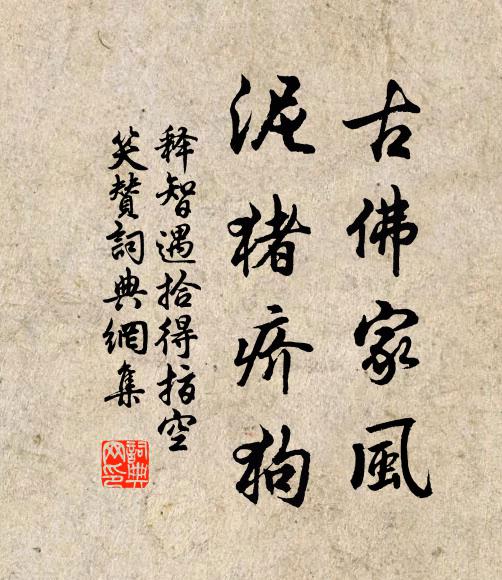 古佛家風
泥猪疥狗
释智遇拾得指空
笑贊詞典網集
詞典
网印